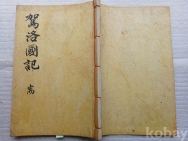 駕洛國記
嵩
kobay